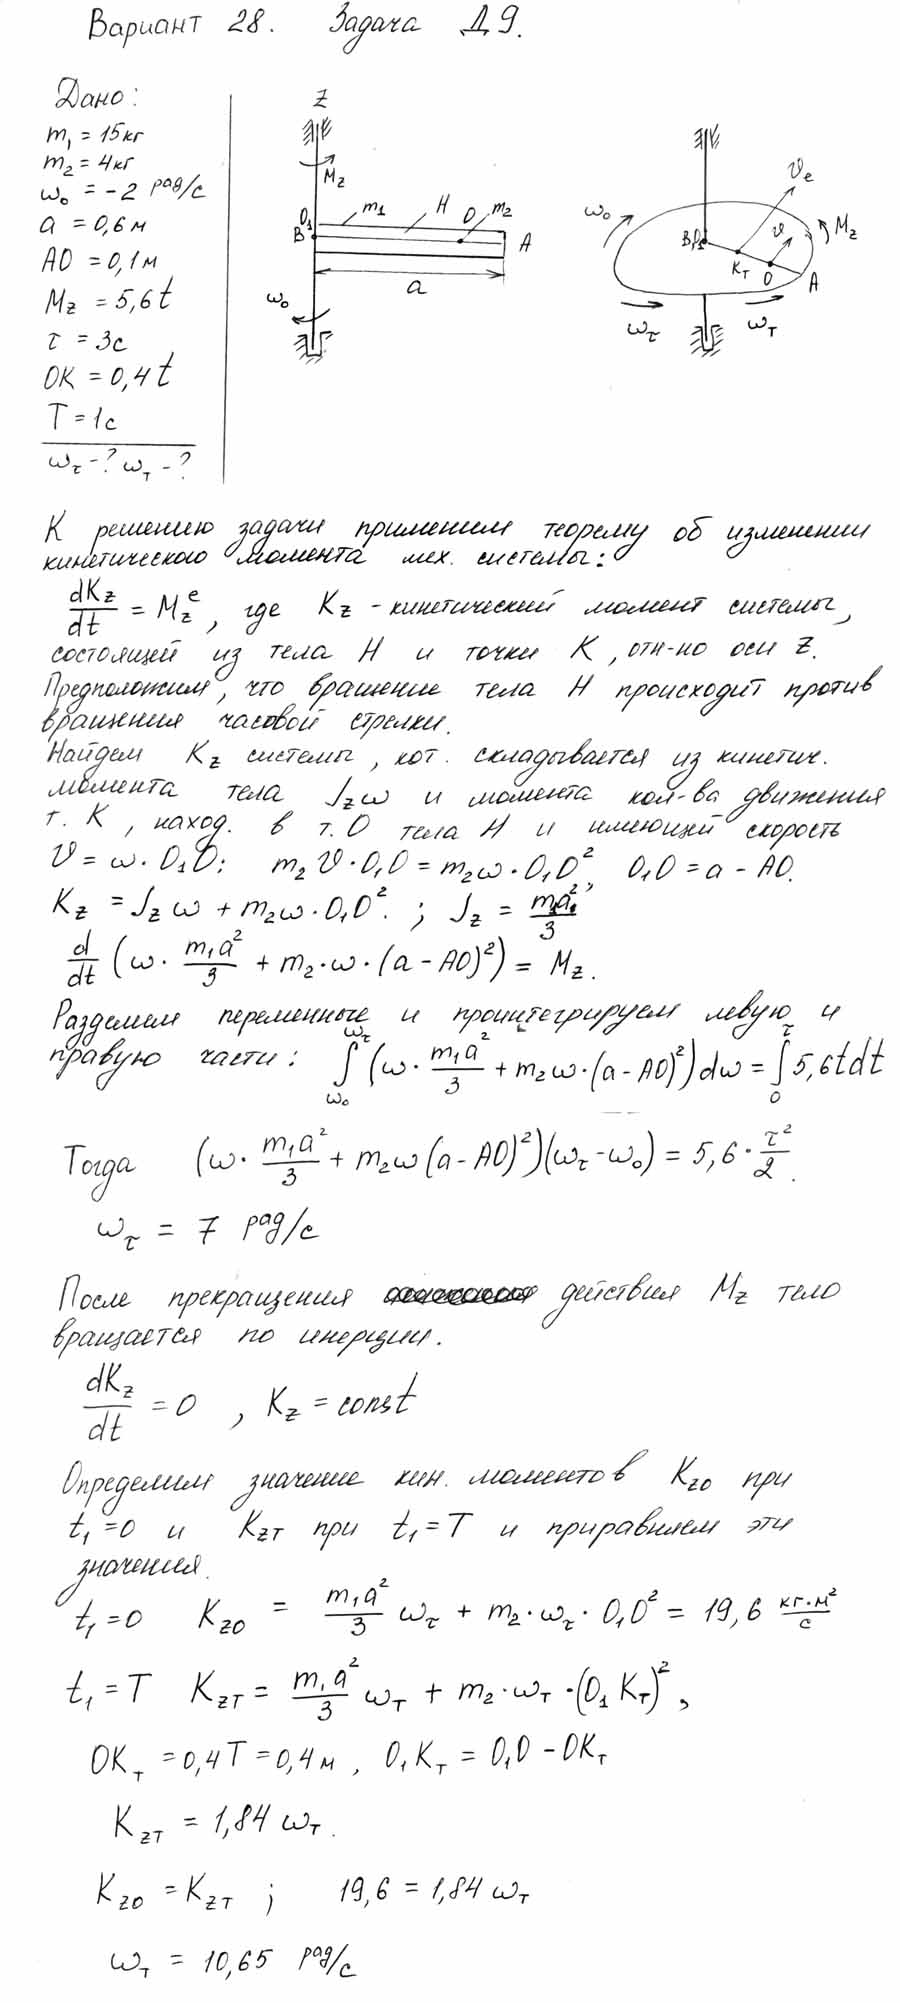 Вариант 28. Задача Д9.
Дано:
m₁ = 15кг
m₂ = 4кг
ω₀ = -2 рад/с
a = 0,6м
AO = 0,1м
M_z = 5,6t
τ = 3с
OK = 0,4t
T = 1с
ω_τ - ? ω_т - ?
Z
M_z
O₁ m₁ H O m₂
B A
a
ω₀
ω₀ V_e
M_z
V
B O₁
K_т O A
ω_τ ω_т
К решению задачи применим теорему об изменении
кинетического момента мех. системы:
dK_z/dt = M_z^e, где K_z - кинетический момент системы,
состоящей из тела H и точки K, отн-но оси Z.
Предположим, что вращение тела H происходит против
вращения часовой стрелки.
Найдем K_z системы, кот. складывается из кинетич.
момента тела J_zω и момента кол-ва движения
т. K, наход. в т. O тела H и имеющей скорость
V = ω·O₁O; m₂V·O₁O = m₂ω·O₁O², O₁O = a - AO.
K_z = J_zω + m₂ω·O₁O². ; J_z = m₁a²/3
d/dt (ω· m₁a²/3 + m₂·ω·(a-AO)²) = M_z.
Разделим переменные и проинтегрируем левую и
правую части: ∫_{ω₀}^{ω_τ} (ω· m₁a²/3 + m₂ω·(a-AO)²)dω = ∫_0^τ 5,6tdt
Тогда (ω· m₁a²/3 + m₂ω(a-AO)²)(ω_τ-ω₀) = 5,6· τ²/2.
ω_τ = 7 рад/с
После прекращения действия M_z тело
вращается по инерции.
dK_z/dt = 0 , K_z = const
Определим значение кин. моментов K_zo при
t₁=0 и K_zT при t₁=T и приравняем эти
значения.
t₁=0 K_zo = m₁a²/3 ω_τ + m₂·ω_τ·O₁O² = 19,6 кг·м²/с
t₁=T K_zT = m₁a²/3 ω_т + m₂·ω_т·(O₁K_т)²,
OK_т = 0,4T = 0,4м, O₁K_т = O₁O - OK_т
K_zT = 1,84 ω_т.
K_zo = K_zT ; 19,6 = 1,84 ω_т
ω_т = 10,65 рад/с